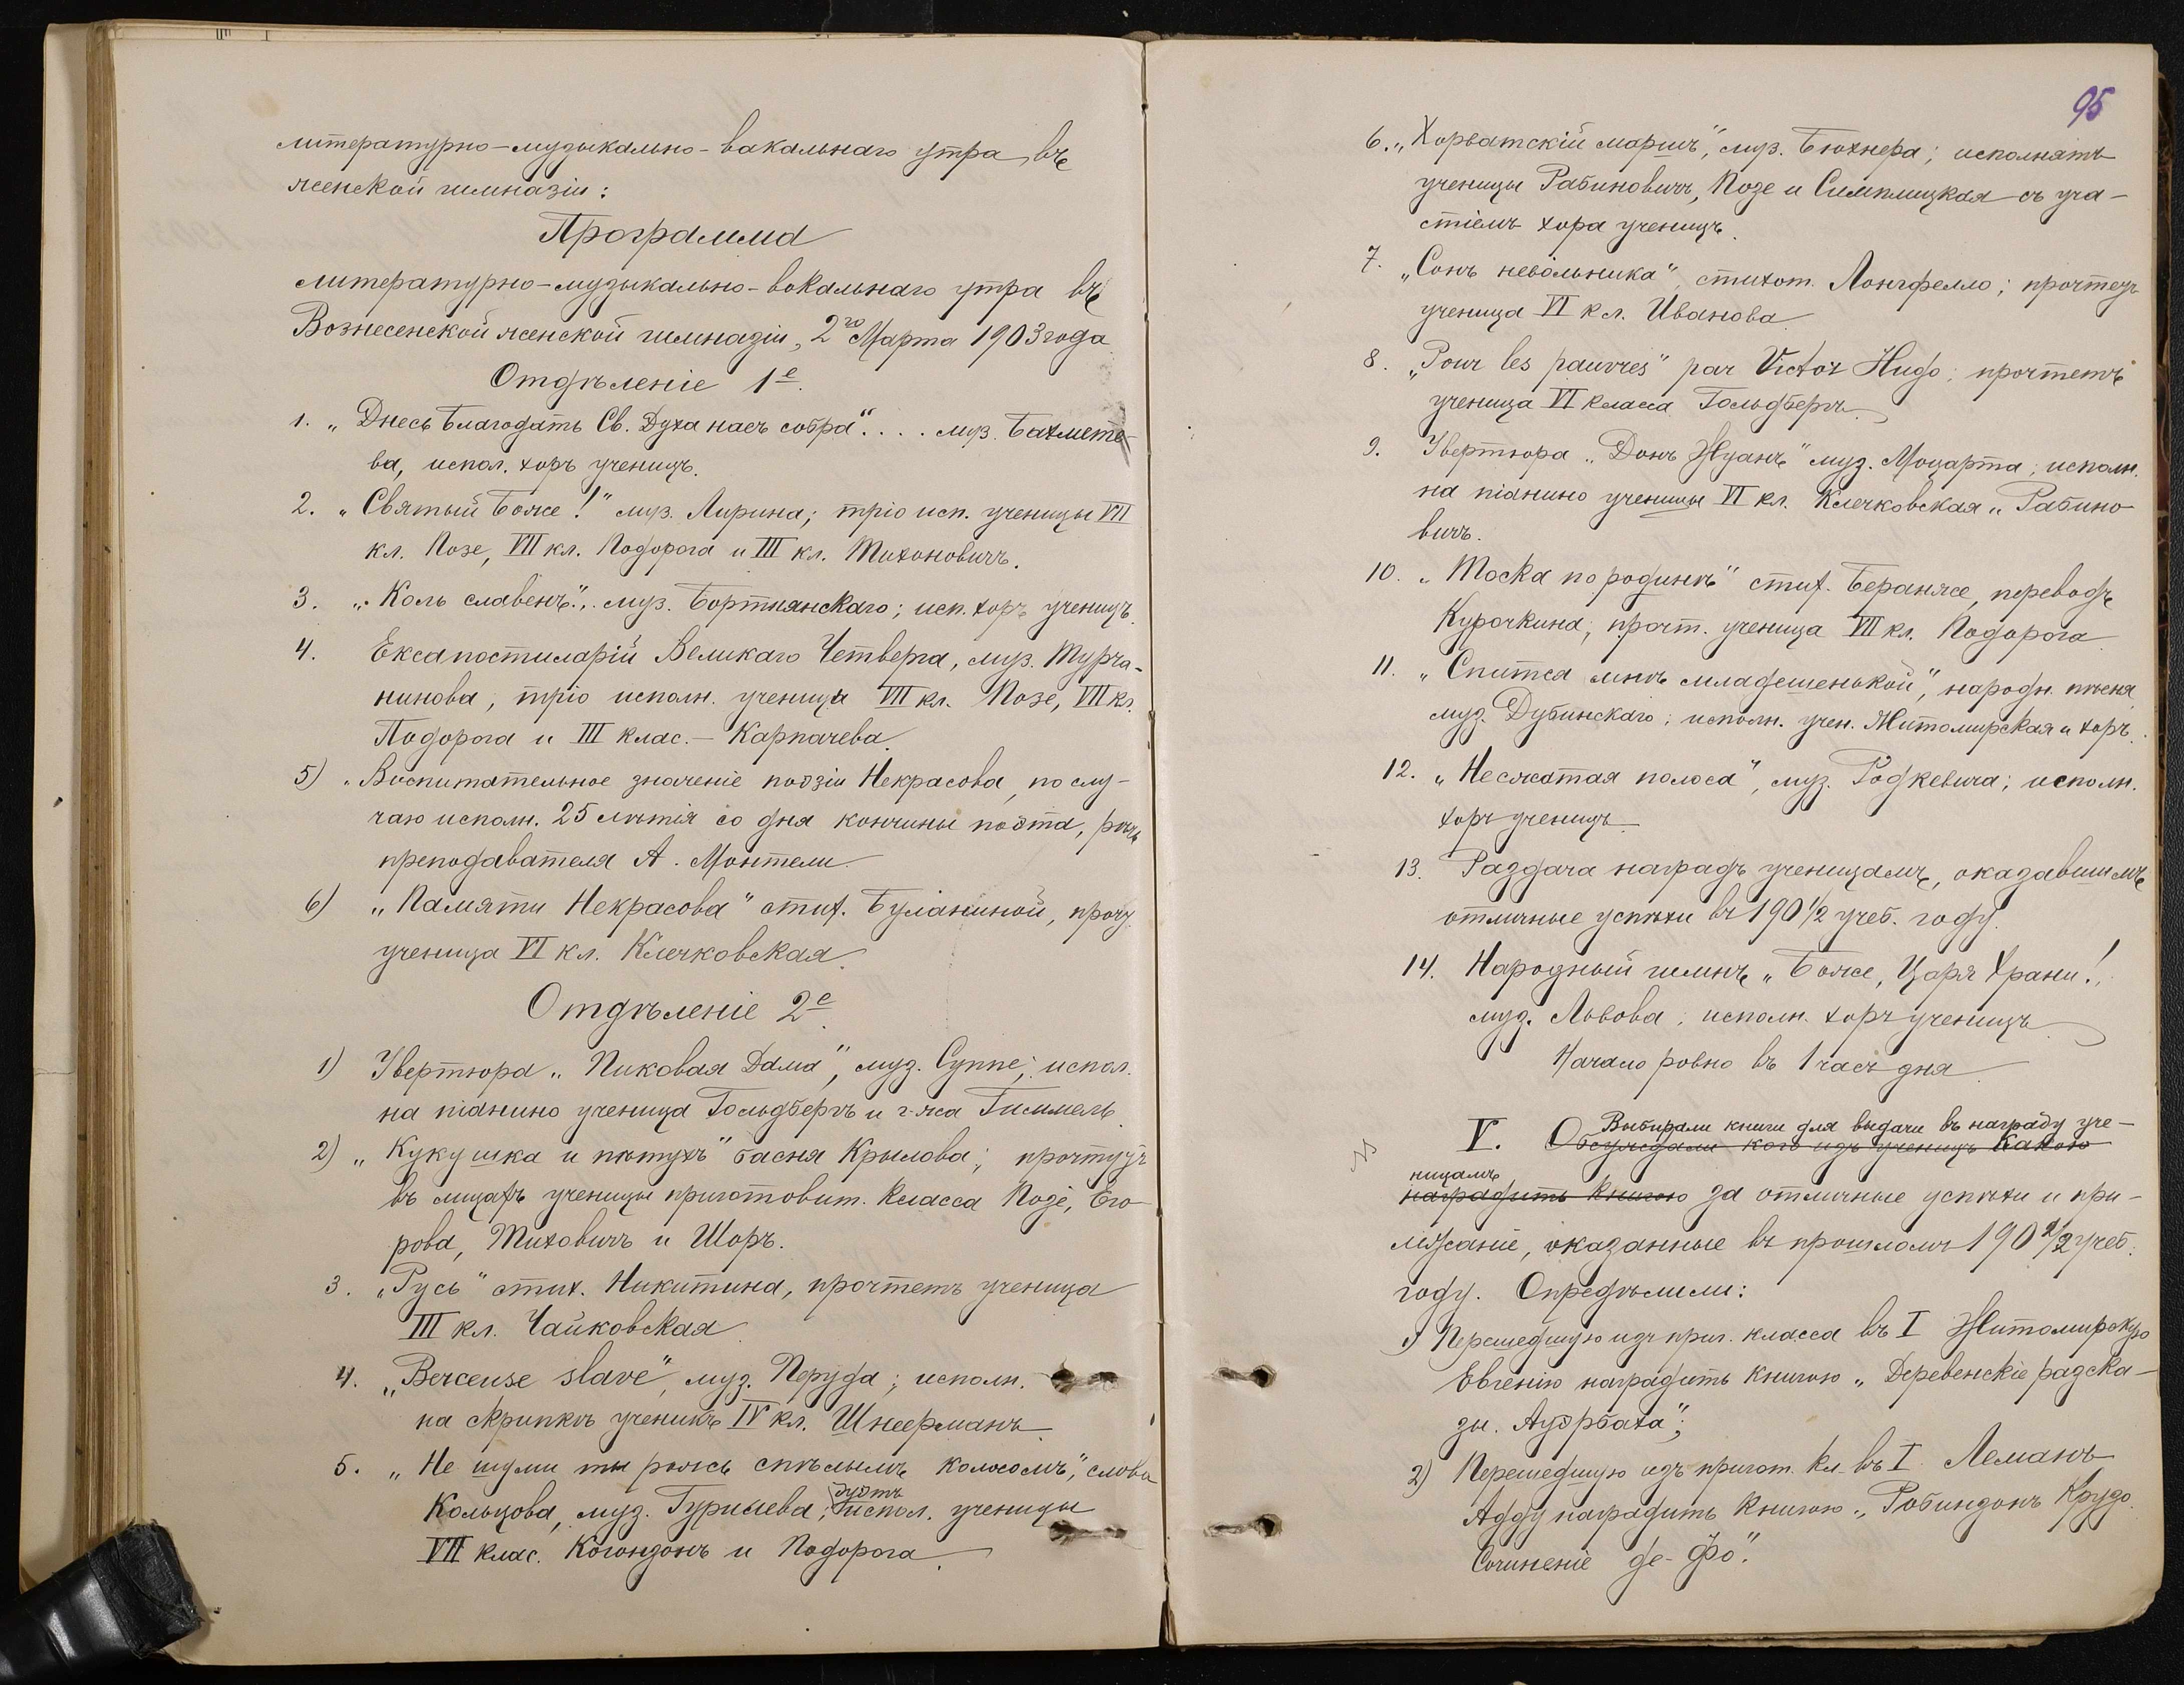 литературно-музыкально-вакальнаго утра въ
женской гимназіи:
Программа
литературно-музыкально-вокальнаго утра въ
Вознесенской женской гимназіи, 2го Марта 1903 года
Отдѣленіе 1е.
1. „Днесь благодать Св. Духа насъ собра".... муз. Бахмете-
ва, испол. хоръ ученицъ.
2. „Святый Боже!" муз. Лирина; тріо исп. ученицы VII
кл. Позе, VII кл. Подорога и III кл. Михоновичъ.
3. „Коль славенъ".. муз. Бортнянскаго; исп. хоръ ученицъ.
4. Ексапостиларій Великаго Четверга, муз. Турча-
нинова, тріо исполн. ученица VII кл. Позе, VII кл.
Подорога и III клас. - Карпачева.
5) „Воспитательное значеніе поэзіи Некрасова, по слу-
чаю исполн. 25 лѣтія со дня кончины поэта, рѣчь
преподавателя А. Монтели
6) „Памяти Некрасова" стих. Буланиной, проч.
ученица VI кл. Клечковская.
Отдѣленіе 2е.
1) Увертюра „Пиковая Дама", муз. Суппе; испол.
на піанино ученица Гольдбергъ и г-жа Гиммель.
2) „Кукушка и пѣтухъ" басня Крылова; прочтутъ
въ лицахъ ученицы приготовит. класса Позе, Его-
рова, Тиховичъ и Шоръ.
3. „Русь" стих. Никитина, прочтетъ ученица
III кл. Чайковская
4. „Berceuse slave", муз. Неруда; исполн.
на скрипкѣ ученикъ IV кл. Шнеерманъ.
5. „Не шуми ты рожь спѣлымъ колосомъ", слова
Кольцова, муз. Гурилева; дуэтъ испол. ученицы
VII клас. Когонзонъ и Подорога.
95
6. „Хорватскій маршъ", муз. Бюхнера; исполнятъ
ученицы Рабиновичъ, Позе и Симплицкая съ уча-
стіемъ хора ученицъ.
7. „Сонъ невольника", стихот. Лонгфелло; прочтетъ
ученица VI кл. Иванова.
8. „Pour les pauvres" par Victor Hugo; прочтетъ
ученица VI класса Гольдбергъ.
9. Увертюра „Донъ Жуанъ" муз. Моцарта; исполн.
на піанино ученицы VI кл. Клечковская и Рабино-
вичъ.
10. „Тоска по родинѣ" стих. Беранже, переводъ
Курочкина, проч. ученица VII кл. Подорога
11. „Спится мнѣ младешенькой", народн. пѣсня,
муз. Дубинскаго; исполн. учен. Житомирская и хоръ.
12. „Несжатая полоса", муз. Родкевича; исполн.
хоръ ученицъ.
13. Раздача наградъ ученицамъ, оказавшимъ
отличные успѣхи въ 190½ учеб. году.
14. Народный гимнъ „Боже, Царя Храни!"
муз. Львова; исполн. хоръ ученицъ
Начало ровно въ 1 часъ дня.
Выбирали книги для выдачи въ награду уче-
V. Обсуждали кого изъ ученицъ какою
ницамъ
наградить книгою за отличные успѣхи и при-
лѣжаніе, оказанные въ прошломъ 190½ учеб.
году. Опредѣлили:
1) Перешедшую изъ приг. класса въ I Житомирскую
Евгенію наградить книгою „Деревенскіе разска-
зы. Ауэрбаха";
2) Перешедшую изъ пригот. кл. въ I Леманъ
Адду наградить книгою „Робинзонъ Крузо.
Сочиненіе де-Фо".